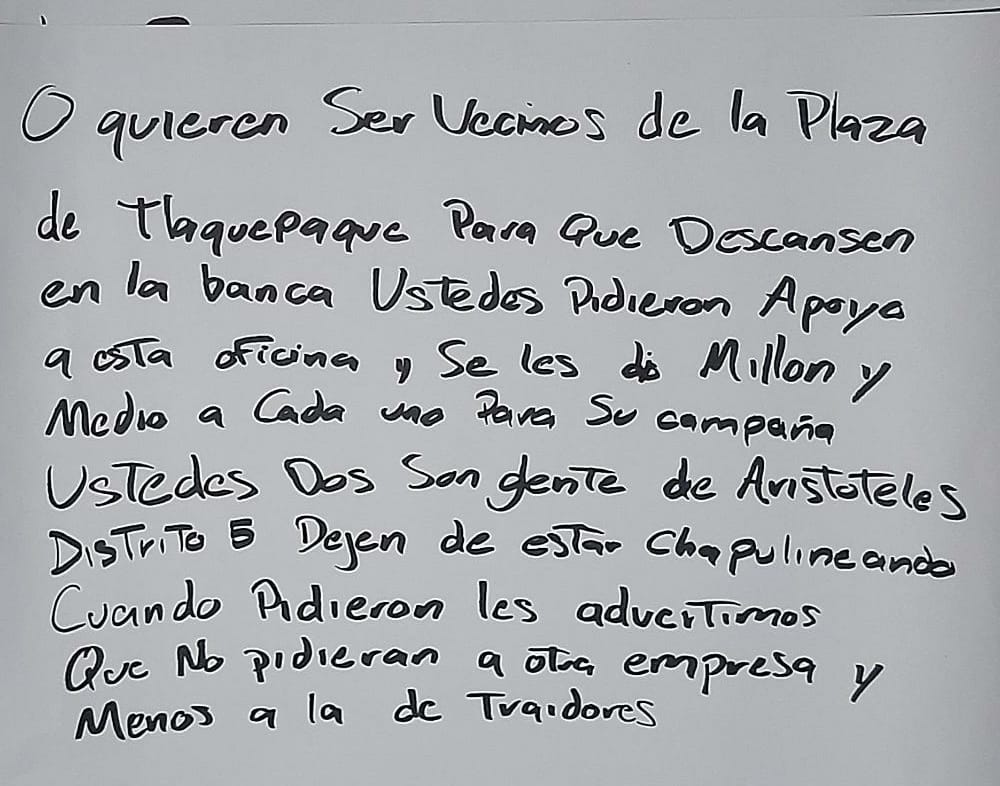 O quieren Ser Vecinos de la Plaza
de tlaquepaque Para Que Descansen
en la banca Ustedes Pidieron Apoyo
a esta oficina y Se les dio Millon y
Medio a Cada uno Para Su campaña
Ustedes Dos Son gente de Aristoteles
Distrito 5 Dejen de estar chapulineando
Cuando Pidieron les advertimos
Que No pidieran a otra empresa y
Menos a la de Traidores